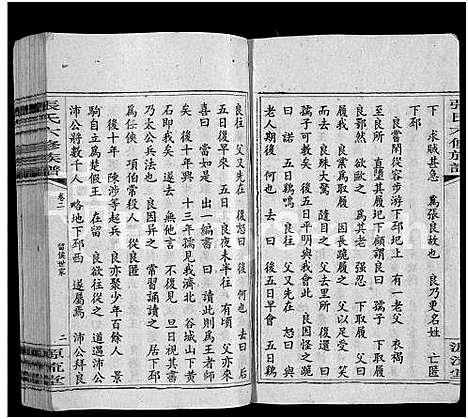 張氏六修族譜
下 求賊甚急 爲張良故也 良乃更名姓 亡匿
下邳
良嘗閒從容步游下邳圯上 有一老父 衣褐
至良所 直墮其履圯下 顧謂良曰 孺子 下取履
良鄂然 欲毆之 爲其老 強忍 下取履 父曰
履我 良業爲取履 因長跪履之 父以足受 笑而
去 良殊大驚 隨目之 父去里所 復還 曰
孺子可教矣 後五日平明與我會此 良因怪之 跪
曰 諾 五日平明 良往 父已先在 怒曰 與老人
期後 何也 去曰 後五日早會 五日鷄鳴
良往 父又先在 復怒曰 後 何也 去曰 後
五日復早來 五日 良夜未半往 有頃 父亦來
喜曰 當如是 出一編書 曰 讀此則爲王者師
矣 後十年興 十三年孺子見我濟北 谷城山下黃
石即我矣 遂去 無他言 不復見 旦日視其書
乃太公兵法也 良因異之 常習誦讀之 居下邳
爲任俠 項伯常殺人 從良匿
後十年 陳涉等起兵 良亦聚少年百餘人 景
駒自立爲楚假王 在留 良欲往從之 道遇沛公
沛公將數千人 略地下邳西 遂屬焉 沛公拜良
張氏六修族譜 卷二 留侯世家 二